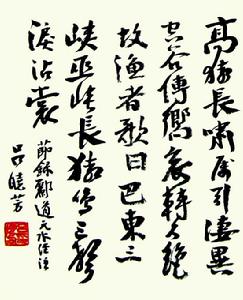 高猿長嘯属引淒異
空谷傳響哀轉久絕
故漁者歌曰巴東三
峡巫峡長猿鸣三聲
淚沾裳
節錄酈道元水經注